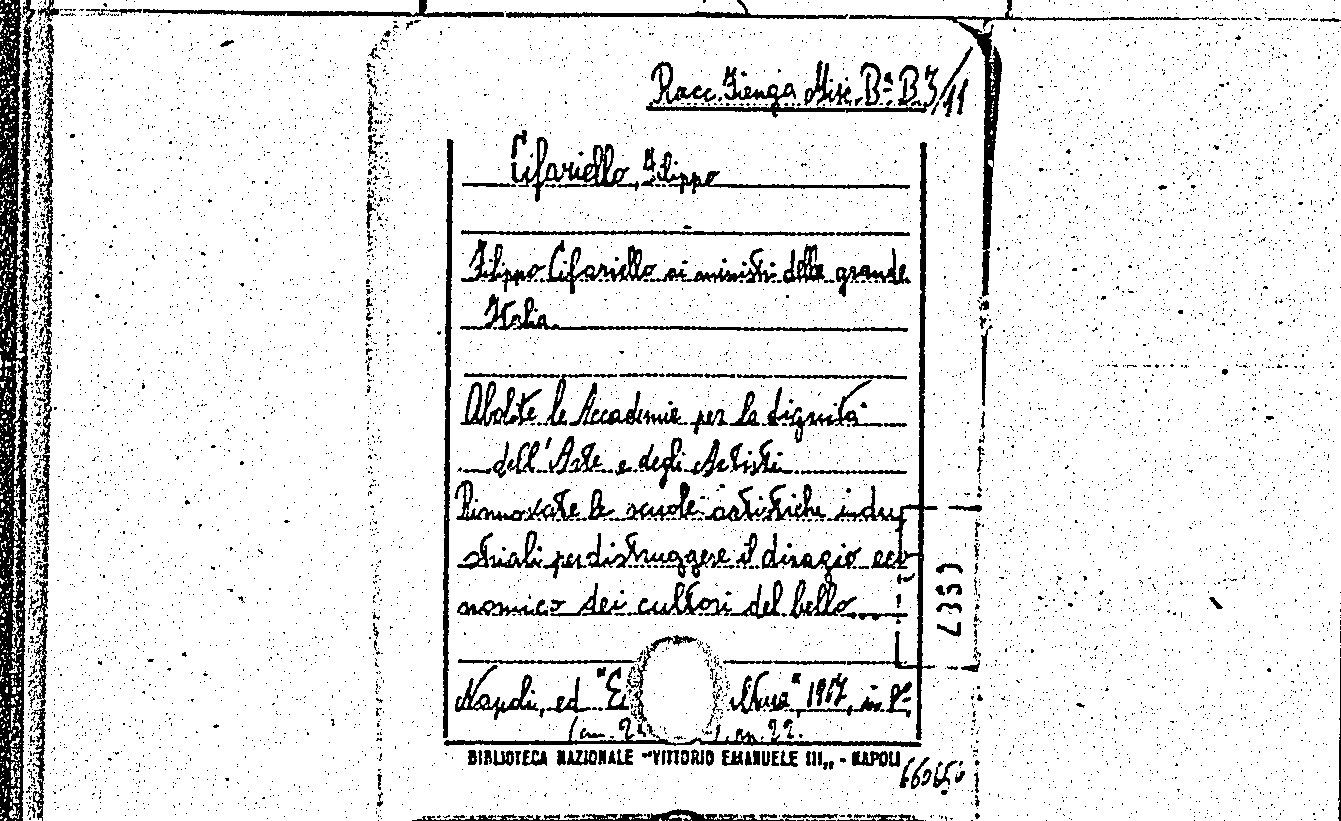 Racc. Fienga Misc. Bª B 7/11
Cifariello, Filippo
Filippo Cifariello ai ministri della grande
Italia.
Abolite le Accademie per la dignità
dell'Arte e degli Artisti
Rinnovate le scuole artistiche indu
striali per distruggere il disagio eco
nomico dei cultori del bello...
Napoli, ed "E Nuva" 1917, in 8º
(cm. 2 pp. 22.
BIBLIOTECA NAZIONALE "VITTORIO EMANUELE III„ - NAPOLI